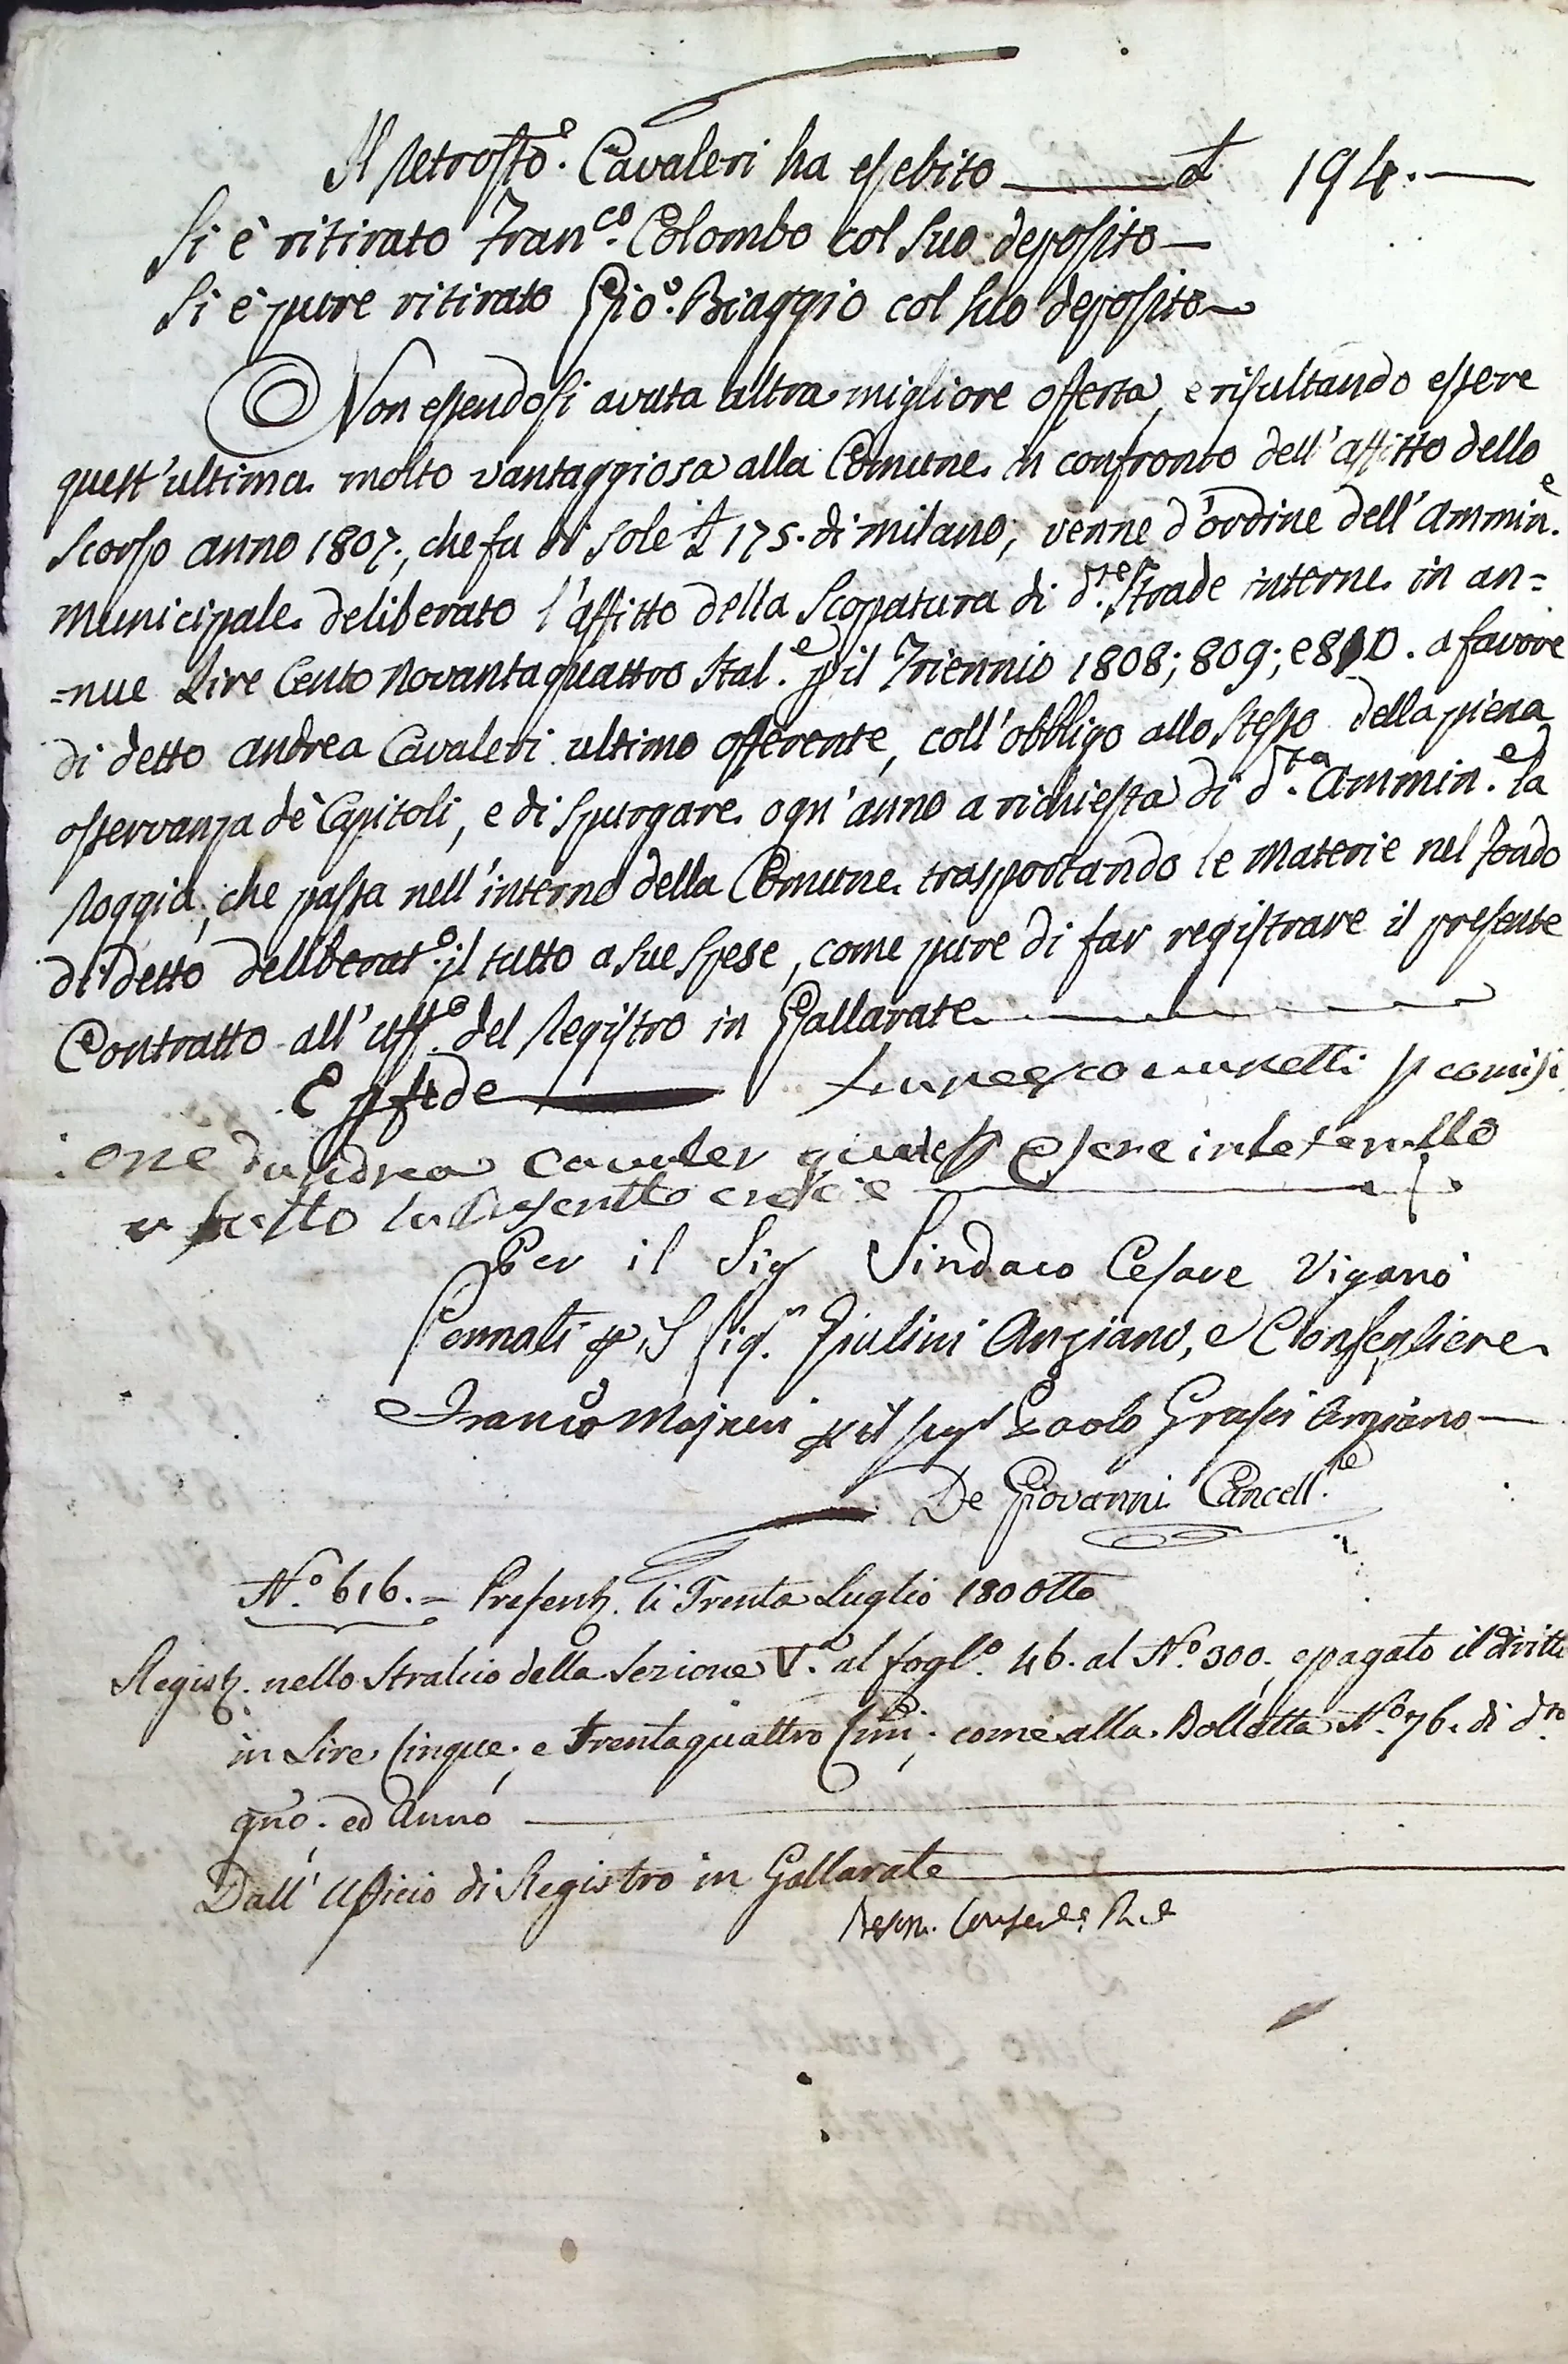 Il retrosto.e Cavaleri ha esebito £ 194.
Si è ritirato Fran.co Colombo col suo deposito
Si è pure ritirato Gio.e Biaggio col suo deposito
Non essendosi avuta altra migliore offerta, e risultando essere
quest'ultima molto vantaggiosa alla Comune in confronto dell'affitto dello
scorso anno 1807., che fu di sole £ 175. di Milano, venne d'ordine dell'Ammin.e
Municipale deliberato l'affitto della Scopatura di d.re Strade interne in an=
=nue Lire Cento Novanta quattro Ital.e p il Triennio 1808; 809; e 810. a favore
di detto Andrea Cavaleri ultimo offerente, coll'obbligo allo stesso della piena
osservanza de' Capitoli, e di spurgare ogn'anno a richiesta di d.ta Ammin.e la
Roggia, che passa nell'interno della Comune trasportando le materie nel fondo
di detto deliberat.o il tutto a sue spese, come pure di far registrare il presente
Contratto all'Uff.o del Registro in Gallarate
E p fede p comisi
one
la
Per il Sig Sindaco Cesare Viganò
Pennati p il Sig.r Giulini Anziano, e Consigliere
Franco p il Sig.r Paolo Grassi Anziano
De Giovanni Cancell.re
N.o 616. = Present. li Trenta Luglio 180Otto
Regist. nello Stralcio della Sezione V.a al fogl.o 46. al N.o 300. e pagato il dritto
in Lire Cinque, e Trentaquattro Cmi; come alla Bolletta N.o 76. di d.to
gno. ed Anno
Dall'Uficio di Registro in Gallarate